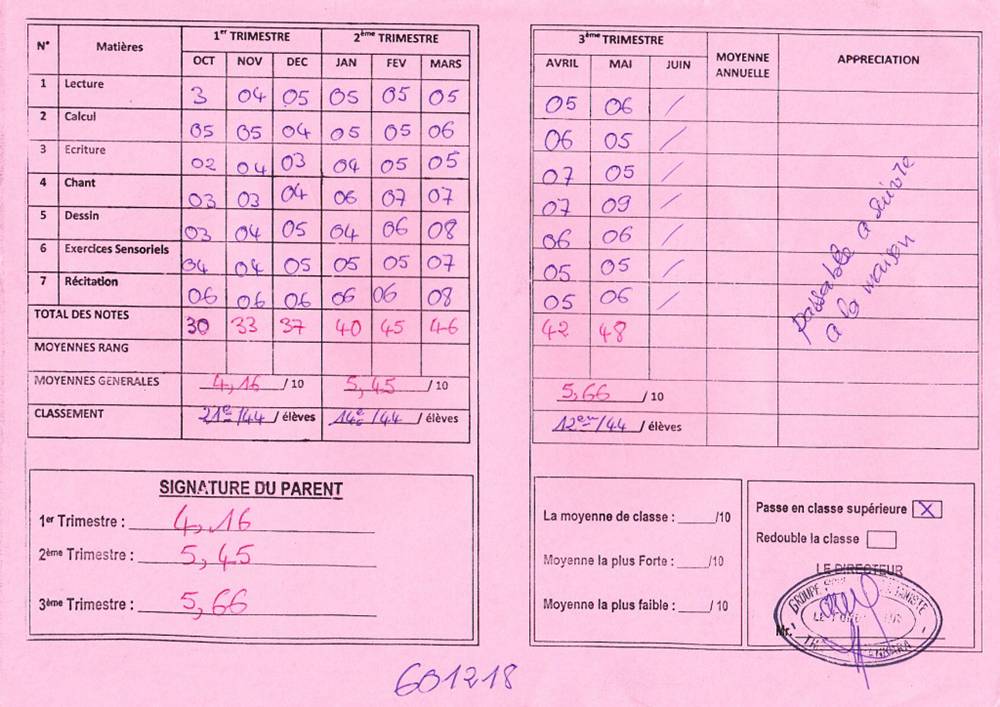 N° Matières 1er TRIMESTRE 2ème TRIMESTRE 3ème TRIMESTRE MOYENNE ANNUELLE APPRECIATION
OCT NOV DEC JAN FEV MARS AVRIL MAI JUIN
1 Lecture 3 04 05 05 05 05 05 06 /
2 Calcul 05 05 04 05 05 06 06 05 /
3 Ecriture 02 04 03 04 05 05 07 05 /
4 Chant 03 03 04 06 07 07 07 09 /
5 Dessin 03 04 05 04 06 08 06 06 /
6 Exercices Sensoriels 04 04 05 05 05 07 05 05 /
7 Récitation 06 06 06 06 06 08 05 06 /
passable a suivre
a la maison
TOTAL DES NOTES 30 33 37 40 45 46 42 48
MOYENNES RANG
MOYENNES GENERALES 4,16 / 10 5,45 / 10 5,66 / 10
CLASSEMENT 21e /44 / élèves 14e /44 / élèves 12em /44 / élèves
SIGNATURE DU PARENT
1er Trimestre : 4,16
2ème Trimestre : 5,45
3ème Trimestre : 5,66
La moyenne de classe : /10
Moyenne la plus Forte : /10
Moyenne la plus faible : / 10
Passe en classe supérieure X
Redouble la classe
LE DIRECTEUR
GROUPE
Mr.
601218